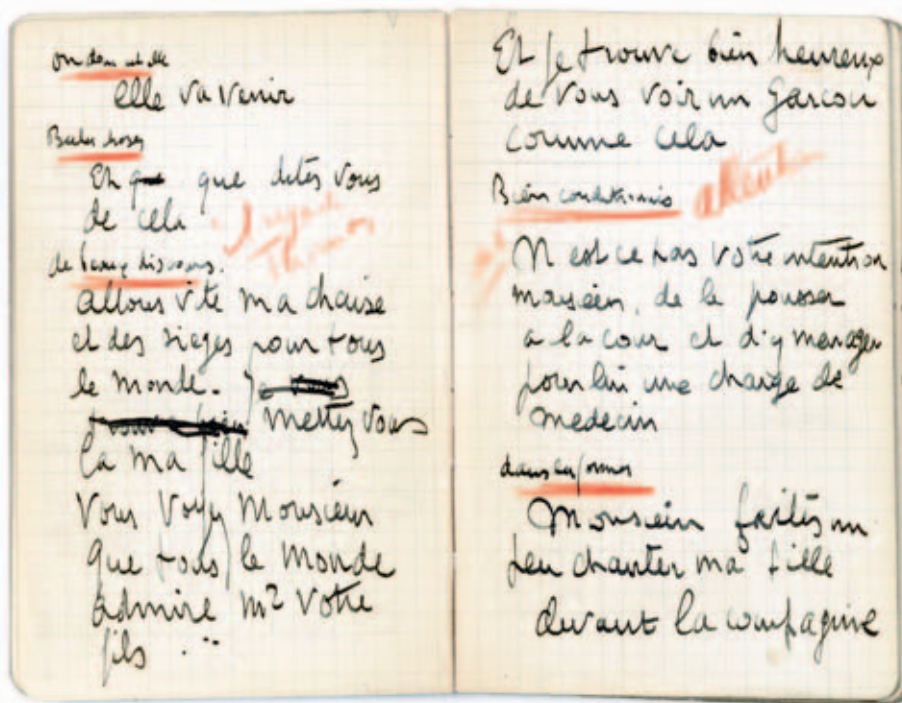 elle va venir
Belles choses
Eh que que dites vous
de cela
de beaux discours.
allons vite ma chaise
et des sieges pour tous
le monde.
mettez vous
la ma fille
Vous voyez Monsieur
que tous le monde
admire mr votre
fils ...
Et je trouve bien heureux
de vous voir un Garcon
comme cela
Bien conditionnés attention
N est ce pas votre intention
monsieur, de le pousser
a la cour et d'y menager
pour lui une charge de
medecin
dans les formes
Monsieur faites un
peu chanter ma fille
devant la compagnie